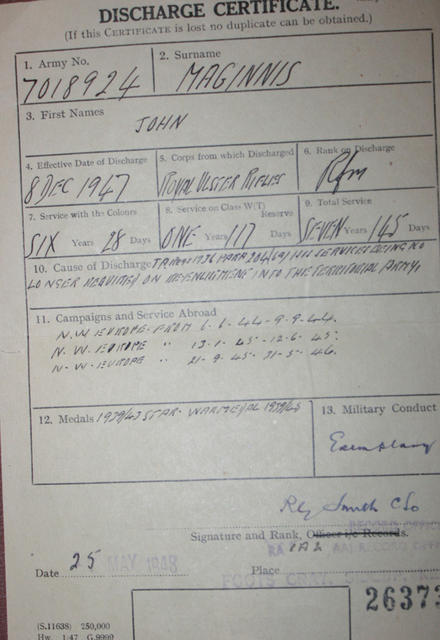 DISCHARGE CERTIFICATE.
(If this CERTIFICATE is lost no duplicate can be obtained.)
1. Army No.
7018924
2. Surname
MAGINNIS
3. First Names
JOHN
4. Effective Date of Discharge
8 DEC 1947
5. Corps from which Discharged
ROYAL ULSTER RIFLES
6. Rank on Discharge
Rfm
7. Service with the Colours
SIX Years 28 Days
8. Service on Class W(T) Reserve
ONE Years 117 Days
9. Total Service
SEVEN Years 145 Days
10. Cause of Discharge PARA 204 HIS SERVICES BEING NO
LONGER REQUIRED ON RE-ENLISTMENT INTO THE TERRITORIAL ARMY.
11. Campaigns and Service Abroad
N.W. EUROPE FROM 6-6-44-9-9-44.
N.W. EUROPE " 13-1-45-12-6-45.
N.W. EUROPE " 21-9-45-31-5-46.
12. Medals 1939/45 STAR. WAR MEDAL 1939/45
13. Military Conduct
Exemplary
Smith
Signature and Rank, Officer i/c Records.
RECORD
Date 25 MAY 1948
Place
FOOTS CRAY,
2637
(S.11638) 250,000
Hw. 1-47 G.9999